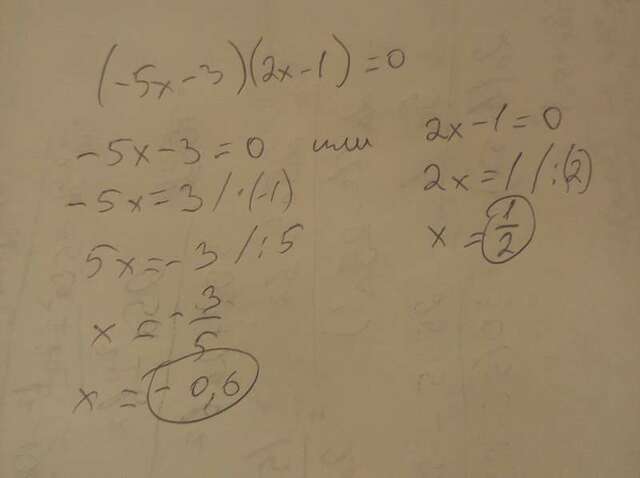 (-5x-3)(2x-1)=0
-5x-3=0 или 2x-1=0
-5x=3 /·(-1)
5x=-3 /:5
x=-3/5
x=-0,6
2x=1 /:(2)
x=1/2